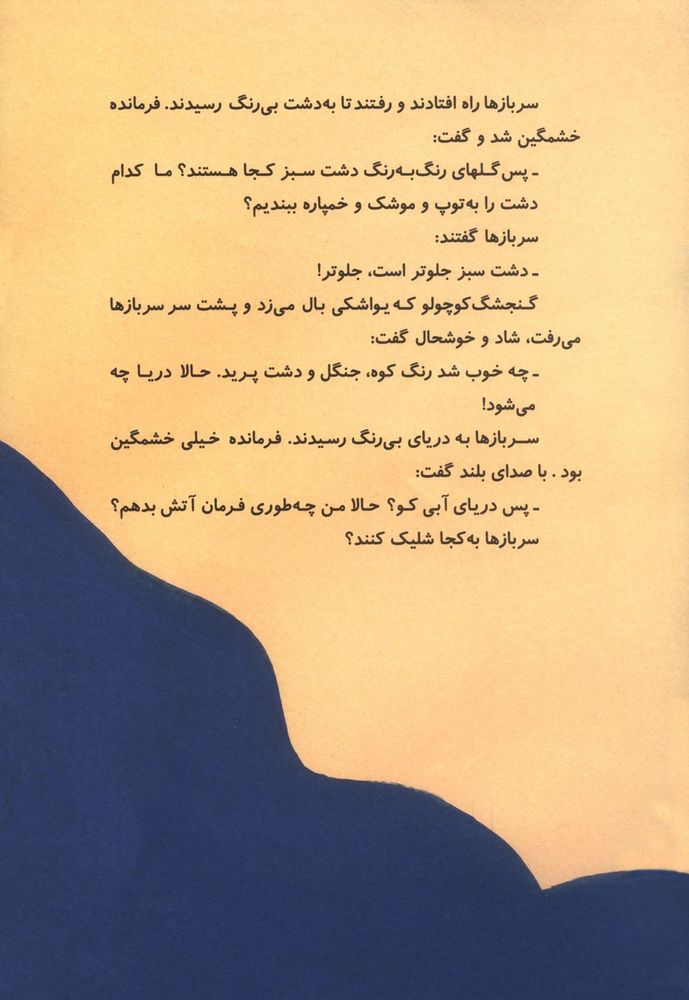 سربازها راه افتادند و رفتند تا به‌دشت بی‌رنگ رسیدند. فرمانده
خشمگین شد و گفت:
ـ پس گلهای رنگ‌به‌رنگ دشت سبز کجا هستند؟ ما کدام
دشت را به‌توپ و موشک و خمپاره ببندیم؟
سربازها گفتند:
ـ دشت سبز جلوتر است، جلوتر!
گنجشگ‌کوچولو که یواشکی بال می‌زد و پشت سر سربازها
می‌رفت، شاد و خوشحال گفت:
ـ چه خوب شد رنگ کوه، جنگل و دشت پرید. حالا دریا چه
می‌شود!
سربازها به دریای بی‌رنگ رسیدند. فرمانده خیلی خشمگین
بود . با صدای بلند گفت:
ـ پس دریای آبی کو؟ حالا من چه‌طوری فرمان آتش بدهم؟
سربازها به‌کجا شلیک کنند؟